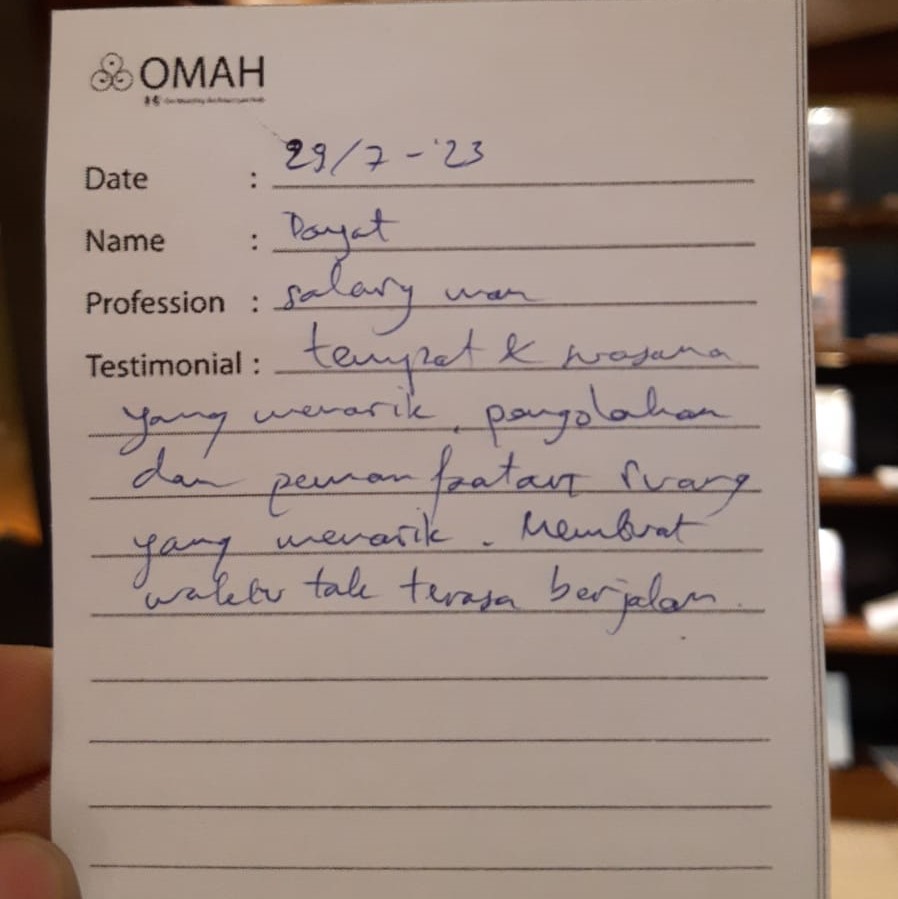 OMAH
Date : 29/7-'23
Name : Dayat
Profession : salary man
Testimonial : tempat & suasana
yang menarik, pengolahan
dan pemanfaatan ruang
yang menarik. Membuat
waktu tak terasa berjalan.